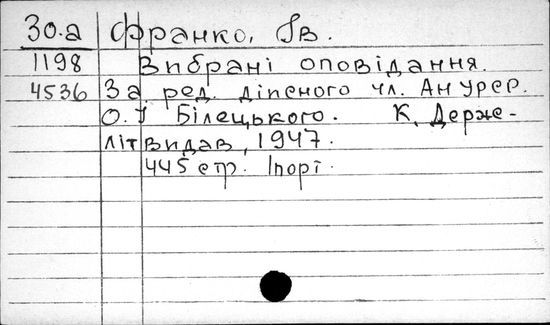 30.а Франко, Ів.
1198 Вибрані оповідання.
4536 За ред. дійсного чл. АН УРСР.
О.І Білецького. К, Держ-
літвидав, 1947.
445 стр. 1порт.